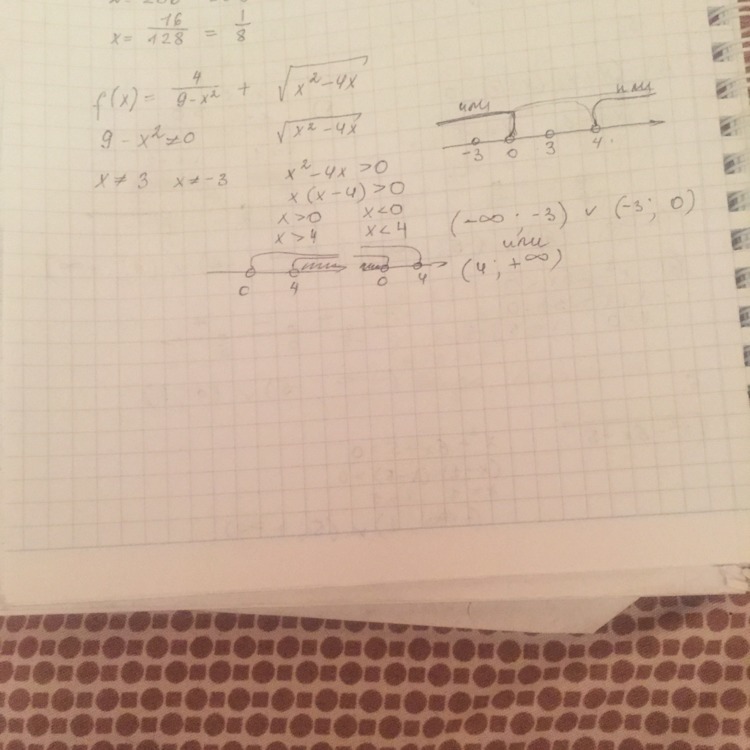 x = 16/128 = 1/8
f(x) = 4/(9-x²) + √(x²-4x)
9 - x² ≠ 0
x ≠ 3 x ≠ -3
√(x²-4x)
x² - 4x > 0
x(x-4) > 0
x > 0 x < 0
x > 4 x < 4
0 4 0 4
или или
-3 0 3 4
(-∞; -3) ∨ (-3; 0)
или
(4; +∞)